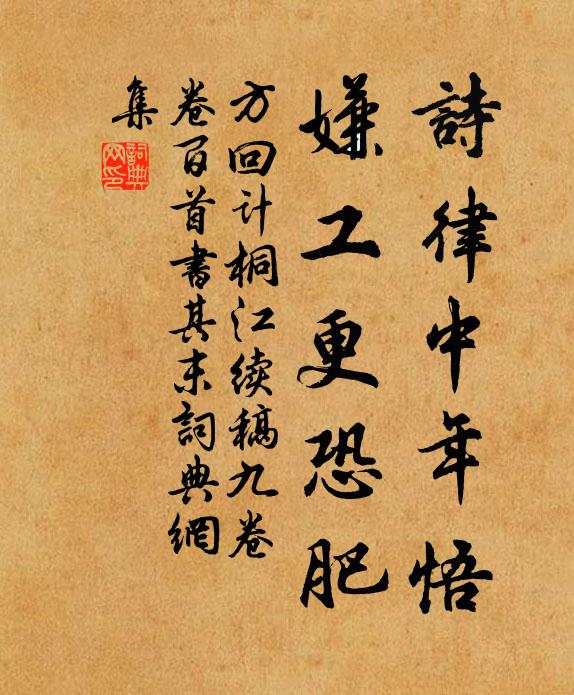 詩律中年悟
嫌工更恐肥
方回计桐江续稿九卷
卷百首書其末詞典網
集
詞典網印